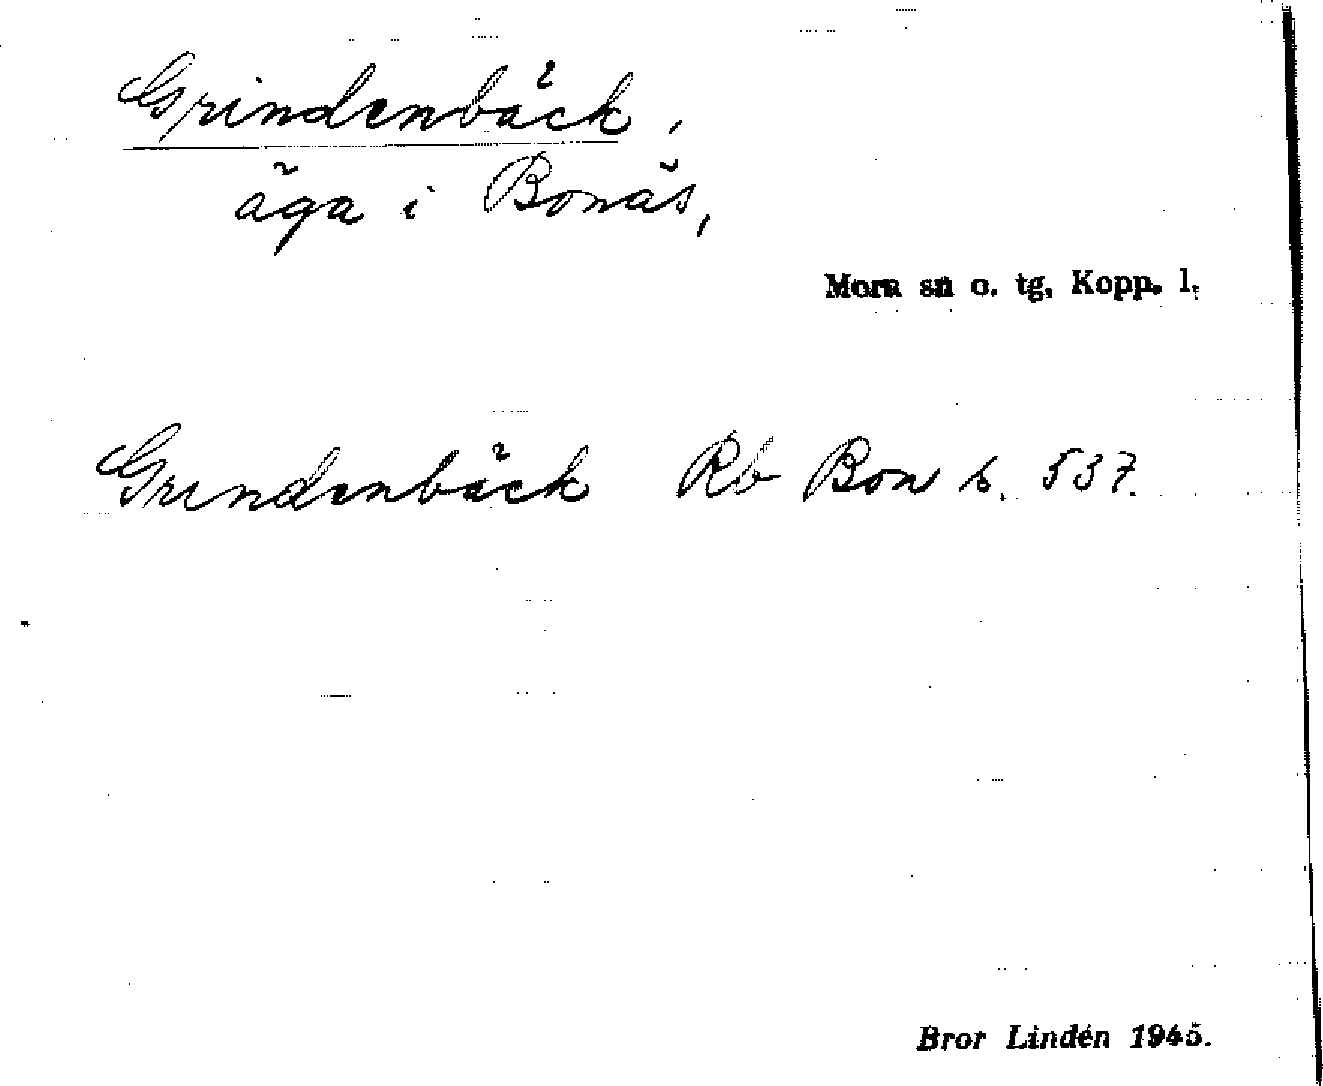 Grindenbäck,
äga i Bonäs,
Mora sn o. tg, Kopp. l.
Grindenbäck Rb Bon s. 537.
Bror Lindén 1945.